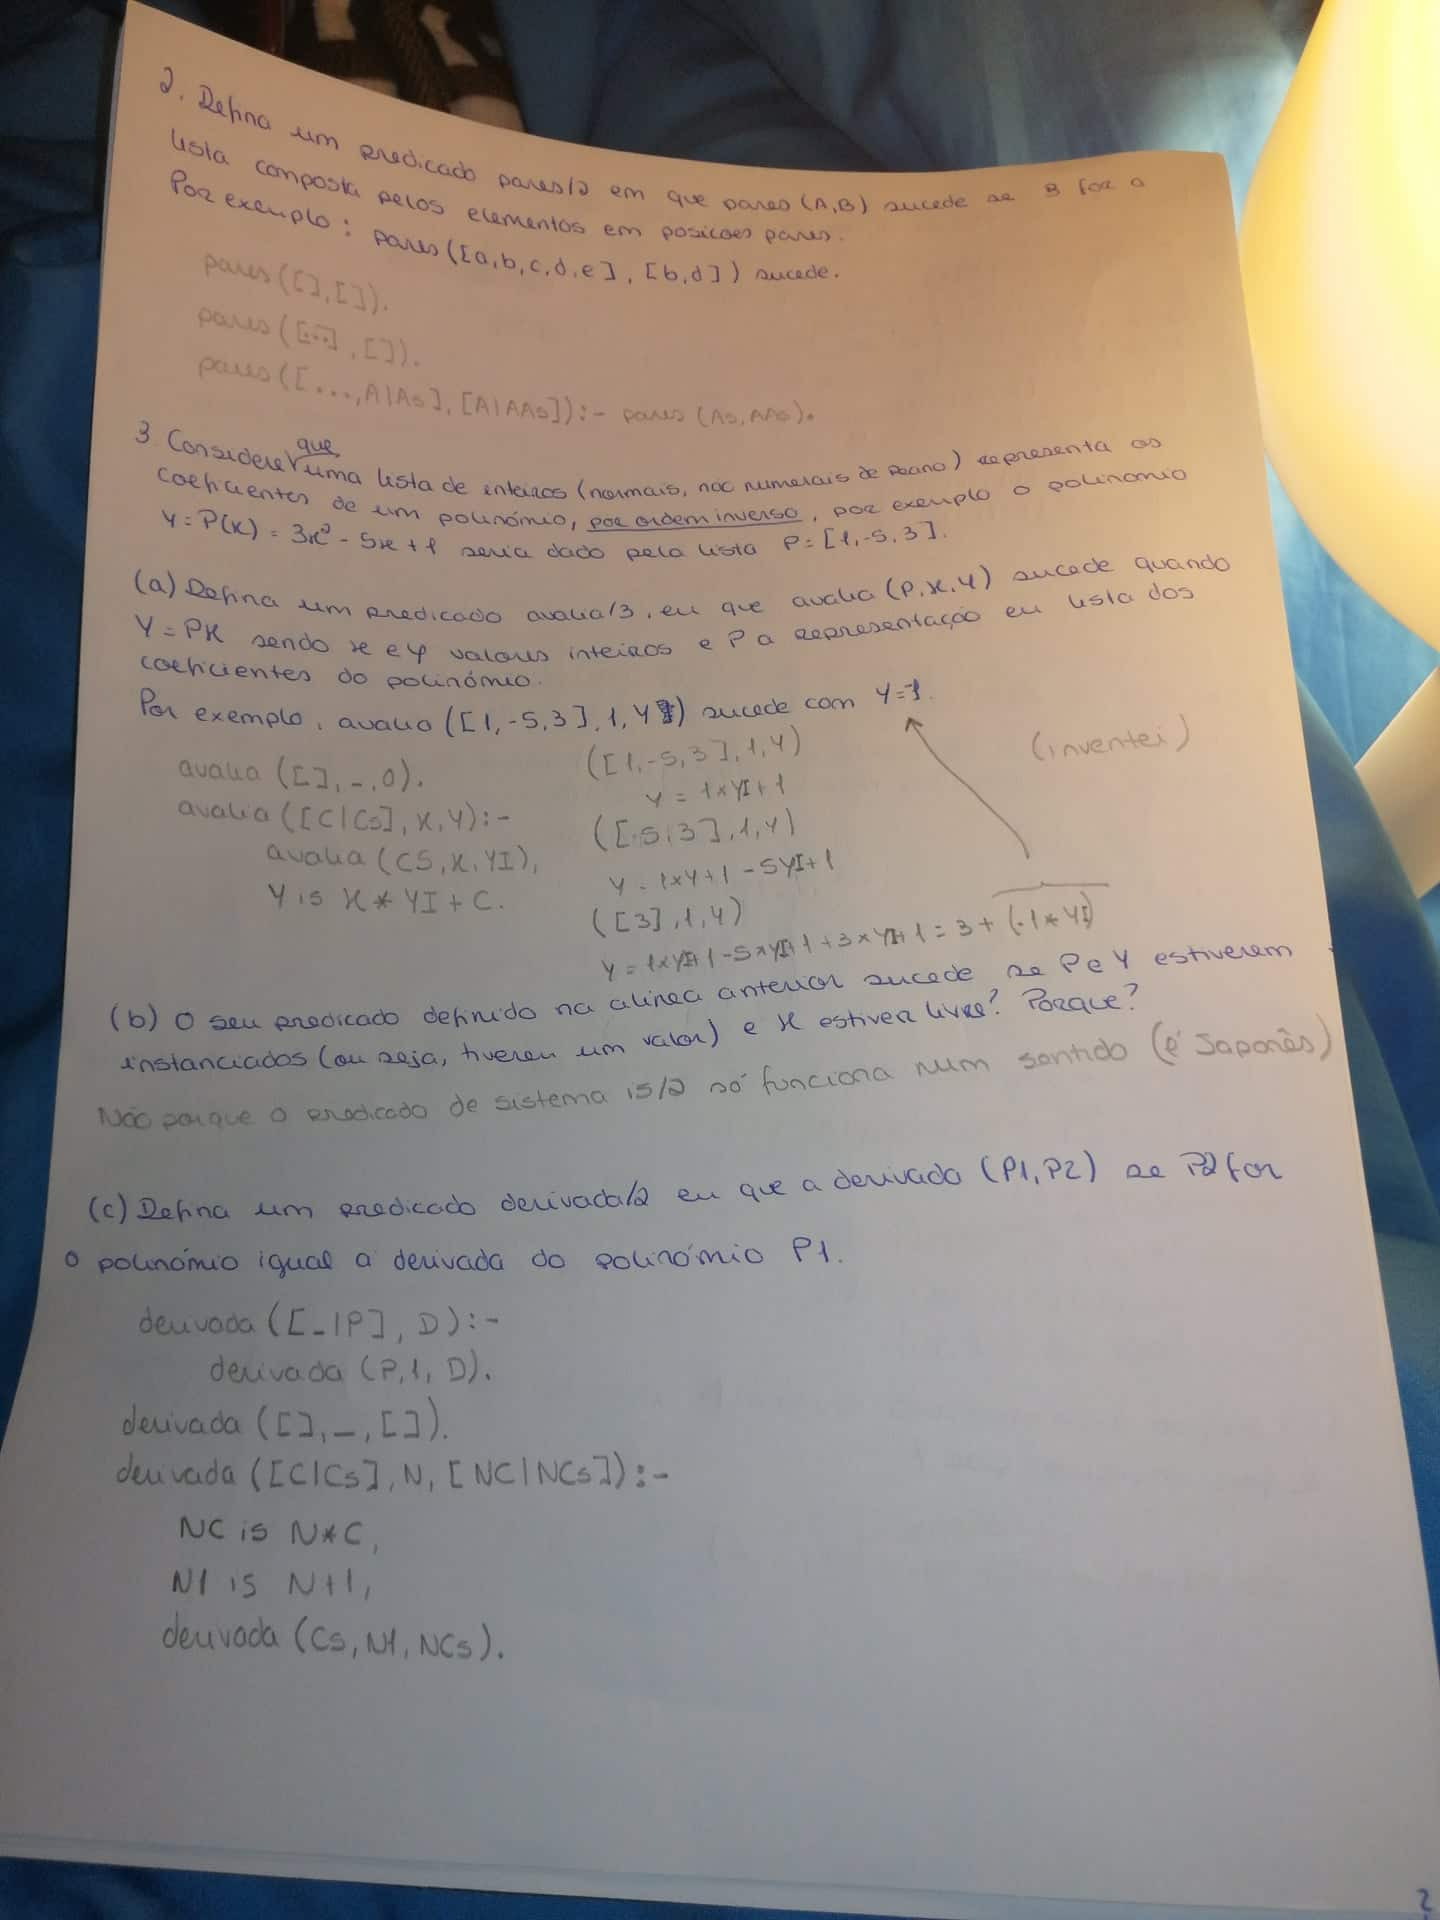 2. Defina um predicado pares/2 em que pares (A,B) sucede se B for a
lista composta pelos elementos em posicoes pares.
Por exemplo: pares([a,b,c,d,e], [b,d]) sucede.
pares([],[]).
pares([...], []).
pares([...,A|As], [A|AAs]):- pares (As,AAs).
3. Considere que uma lista de inteiros (normais, nao numerais de peano) representa os
coeficientes de um polinómio, por ordem inverso, por exemplo o polinomio
Y=P(x) = 3x² - 5x + 1 seria dado pela lista P=[1,-5,3].
(a) Defina um predicado avalia/3, eu que avalia (P,X,Y) sucede quando
Y=PX sendo x e y valores inteiros e P a representação eu lista dos
coeficientes do polinómio.
Por exemplo, avalia ([1,-5,3],1,Y) sucede com Y=-1.
(inventei)
avalia ([],_,0).
avalia ([C|Cs],X,Y):-
avalia (CS,X,YI),
Y is X * YI + C.
([1,-5,3],1,Y)
Y = 1xYI+1
([-5,3],1,Y)
Y = 1xY+1 -5YI+1
([3],1,Y)
Y = 1xYI+1-5xYI+1+3xYI+1 = 3 + (-1*YI)
(b) O seu predicado definido na alinea anterior sucede se P e Y estiverem
instanciados (ou seja, tiveren um valor) e X estiver livre? Porque?
Não porque o predicado de sistema is/2 só funciona num sentido (é Japonês)
(c) Defina um predicado derivada/2 eu que a derivada (P1,P2) se P2 for
o polinómio igual a derivada do polinómio P1.
derivada ([_|P], D):-
derivada (P,1,D).
derivada ([],_,[]).
derivada ([C|Cs], N, [NC|NCs]):-
NC is N*C,
N1 is N+1,
derivada (Cs,N1,NCs).
2